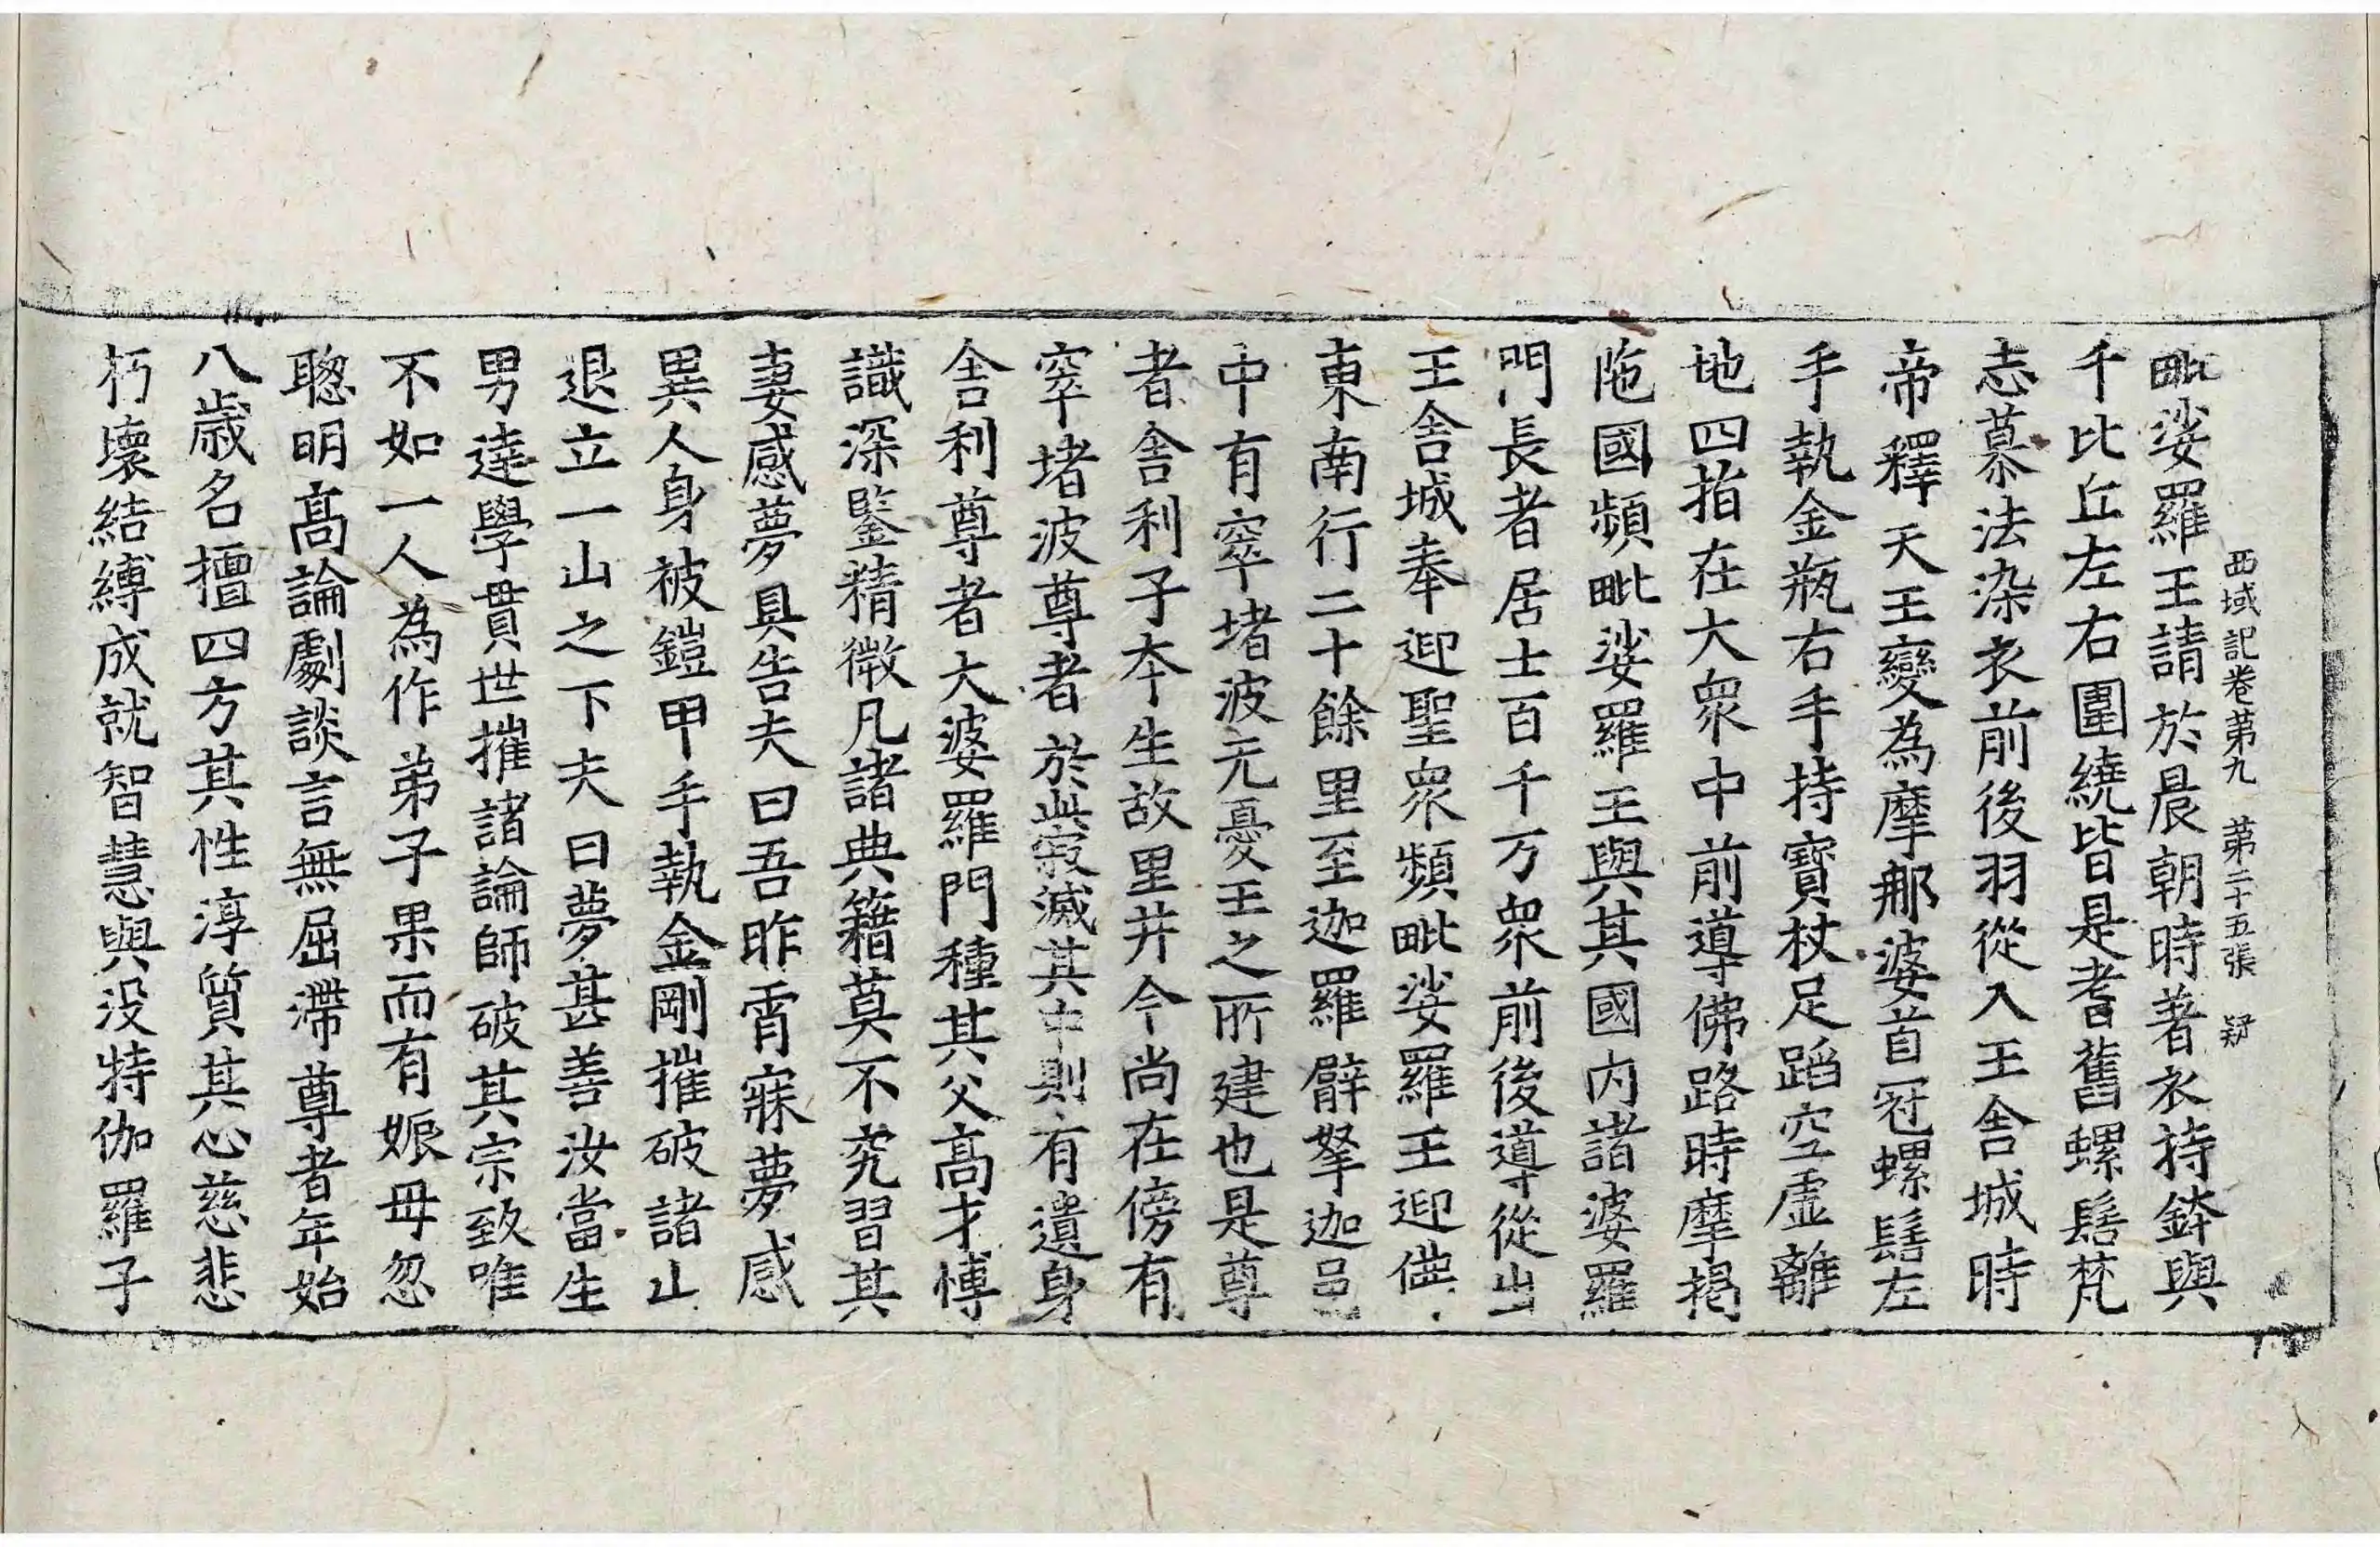 西域記卷第九 第二十五張 疑
毗娑羅王請於晨朝時著衣持鉢與
千比丘左右圍繞皆是耆舊螺髻梵
志慕法染衣前後羽從入王舍城時
帝釋天王變為摩那婆首冠螺髻左
手執金瓶右手持寶杖足蹈空虛離
地四指在大衆中前導佛路時摩揭
陁國頻毗娑羅王與其國內諸婆羅
門長者居士百千万衆前後導從出
王舍城奉迎聖衆頻毗娑羅王迎佛
東南行二十餘里至迦羅臂拏迦邑
中有窣堵波元憂王之所建也是尊
者舍利子夲生故里井今尚在傍有
窣堵波尊者於此寂滅其中則有遺身
舍利尊者大婆羅門種其父高才博
識深鑒精微凡諸典籍莫不究習其
妻感夢具告夫曰吾昨宵寐夢感
異人身被鎧甲手執金剛摧破諸山
退立一山之下夫曰夢甚善汝當生
男達學貫世摧諸論師破其宗致唯
不如一人為作弟子果而有娠毋忽
聰明高論劇談言無屈滯尊者年始
八歲名擅四方其性淳質其心慈悲
朽壞結縛成就智慧與没特伽羅子